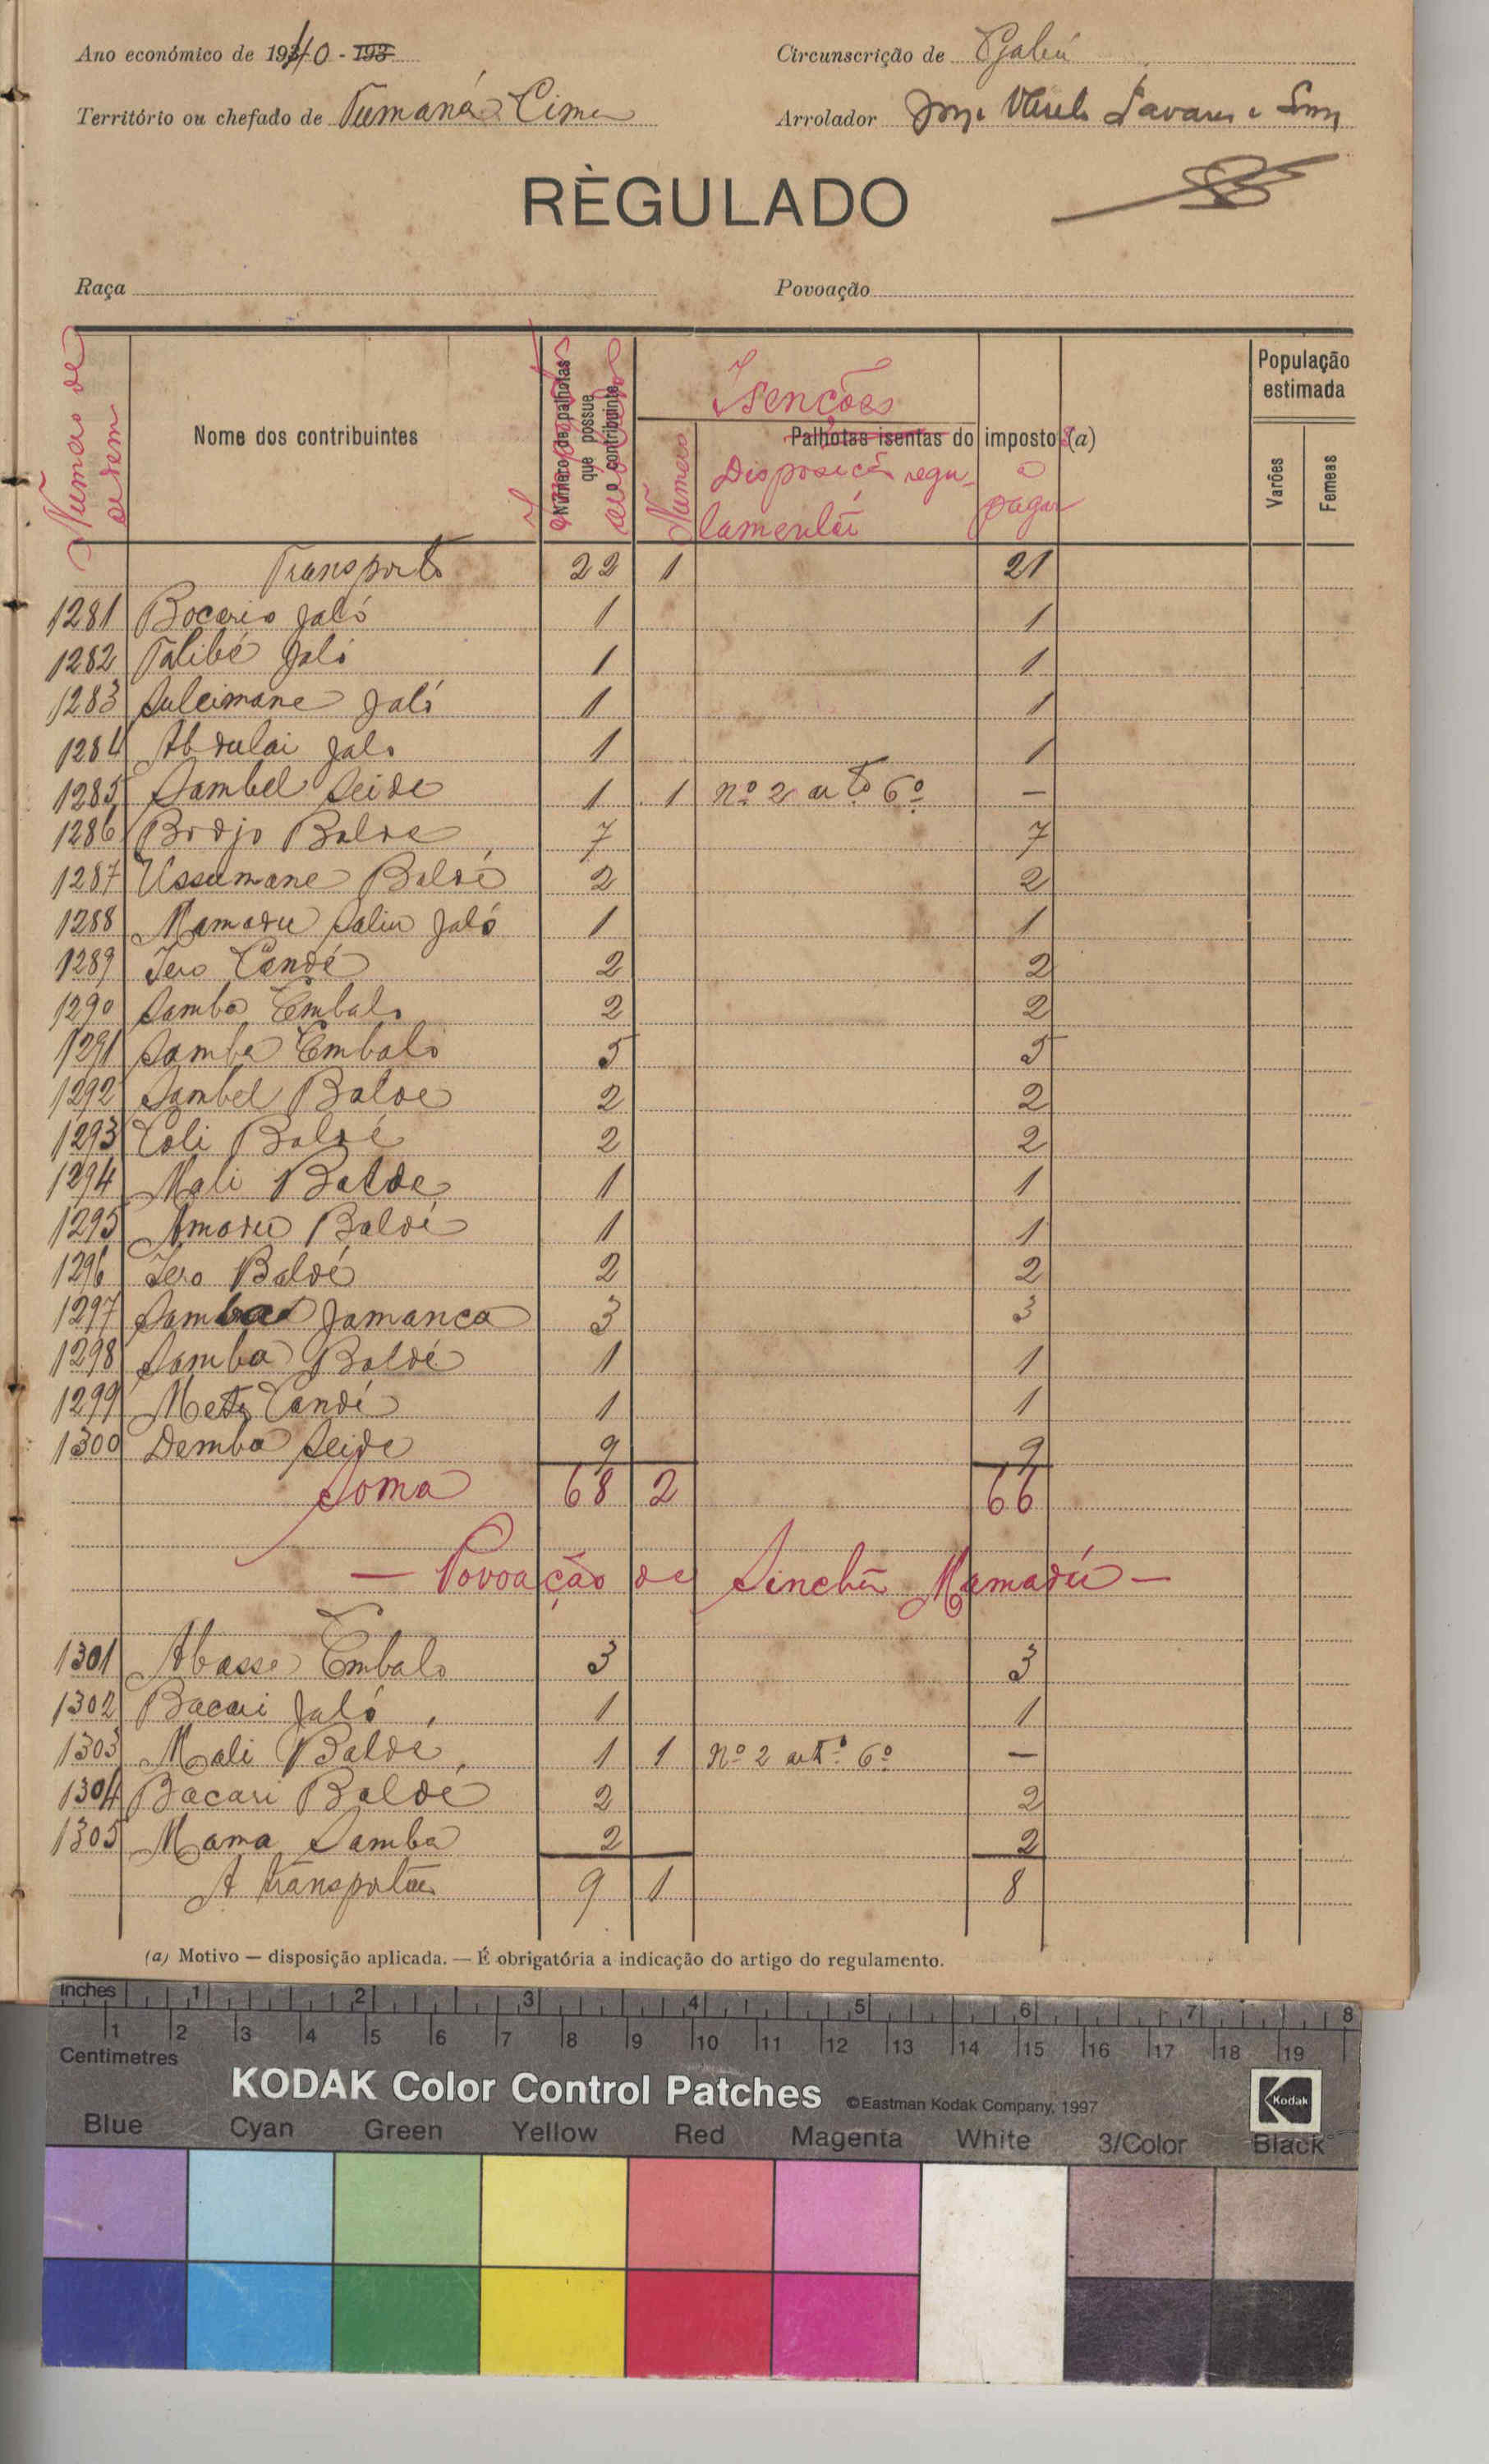 Ano económico de 1940 - 193
Circunscrição de Gabú
Território ou chefado de Tumaná Cima
Arrolador Jorge Tavares e
RÈGULADO
Raça
Povoação
Número de ordem
Nome dos contribuintes
Número de palhotas que possue o contribuinte
Isenções
Número
Palhotas isentas do impostos (a)
Disposição regulamentar
a pagar
População estimada
Varões
Femeas
Transporte 22 1 21
1281 Bocario Jaló 1 1
1282 Talibé Jaló 1 1
1283 Suleimane Jaló 1 1
1284 Abdulai Jalo 1 1
1285 Sambel Seide 1 1 nº 2 artº 6º —
1286 Brojo Balde 7 7
1287 Ussumane Baldé 2 2
1288 Mamadu Saliu Jaló 1 1
1289 Iero Candé 2 2
1290 Samba Embalo 2 2
1291 Samba Embaló 5 5
1292 Sambel Balde 2 2
1293 Coli Baldé 2 2
1294 Mali Balde 1 1
1295 Amadu Baldé 1 1
1296 Iero Baldé 2 2
1297 Samba Jamanca 3 3
1298 Samba Baldé 1 1
1299 Candé 1 1
1300 Demba Seide 9 9
Soma 68 2 66
— Povoação de Sinchã Mamadú —
1301 Abasse Embalo 3 3
1302 Bacari Jaló 1 1
1303 Mali Balde 1 1 nº 2 artº 6º —
1304 Bacari Baldé 2 2
1305 Mama Samba 2 2
A transportar 9 1 8
(a) Motivo — disposição aplicada. — É obrigatória a indicação do artigo do regulamento.
inches 1 2 3 4 5 6 7 8
1 2 3 4 5 6 7 8 9 10 11 12 13 14 15 16 17 18 19
Centimetres
KODAK Color Control Patches ©Eastman Kodak Company, 1997 Kodak
Blue Cyan Green Yellow Red Magenta White 3/Color Black